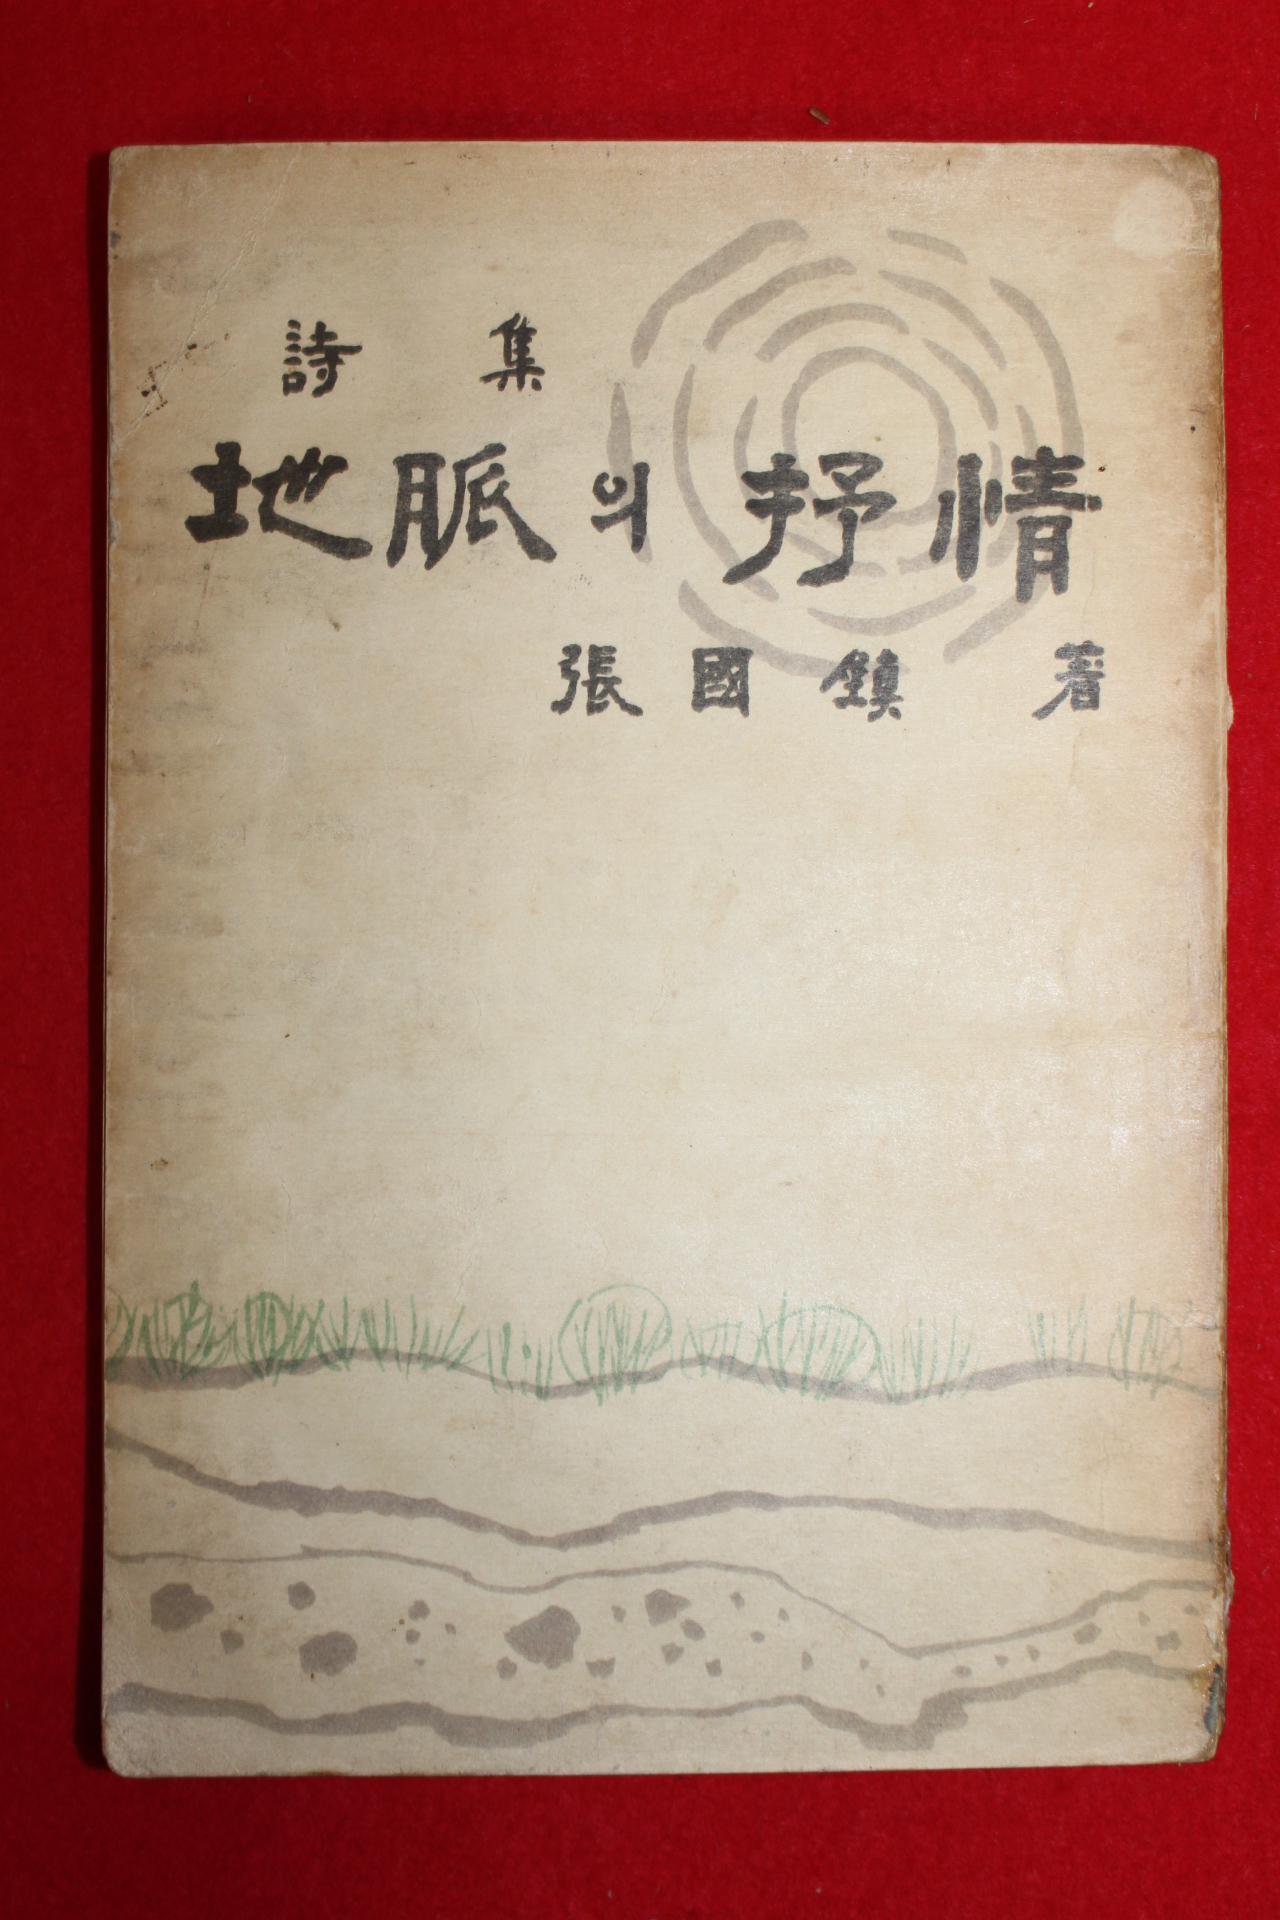 詩 集
地脈의 抒情
張國鎭 著